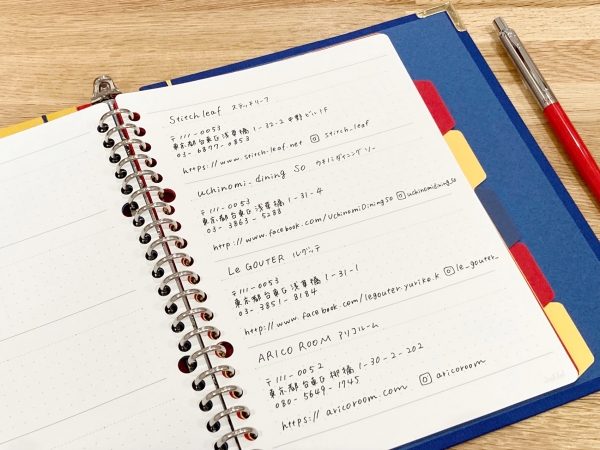 Stitch leaf ステッチリーフ
〒111-0053
東京都台東区浅草橋 1-32-2 中野ビル1F
03-6877-0853
https://www.stitch-leaf.net stitch_leaf
uchinomi_dining So ウチノミダイニング ソー
〒111-0053
東京都台東区浅草橋 1-31-4
03-3863-5288
http://www.facebook.com/UchinomiDiningSo uchinomidining.so
Le GOUTER ルグッテ
〒111-0053
東京都台東区浅草橋 1-31-1
03-3851-8184
http://www.facebook.com/legouter.yurike.k le_gouter_
ARICO ROOM アリコルーム
〒111-0052
東京都台東区柳橋 1-30-2-202
080-5649-1745
https://aricoroom.com aricoroom